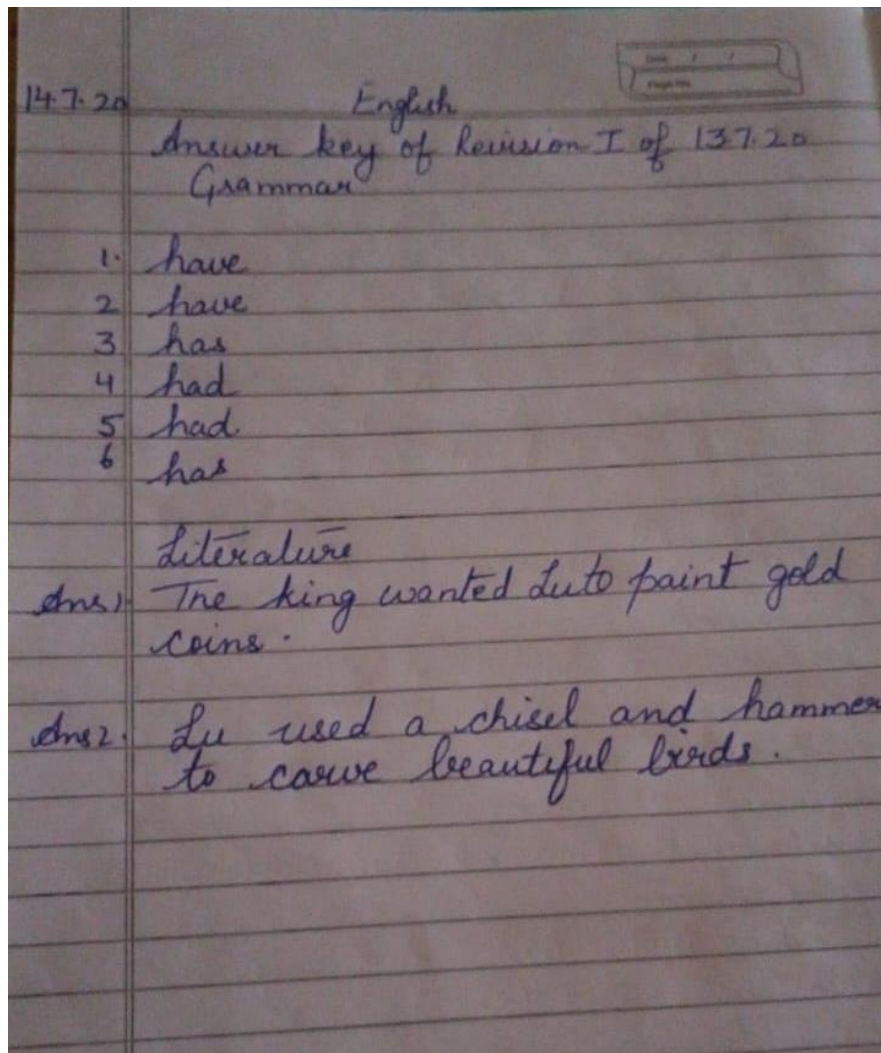 Date / /
Page No.
14.7.20 English
Answer key of Revision I of 13.7.20
Grammar
1. have
2 have
3 has
4 had
5 had.
6 has
Literature
Ans 1) The king wanted Lu to paint gold
coins.
Ans 2. Lu used a chisel and hammer
to carve beautiful birds.